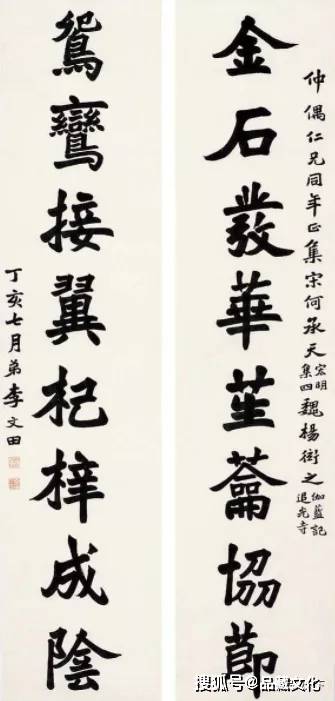 仲偶仁兄同年正集宋何承天宏明集四魏楊衒之伽藍記追光寺
金石發華苼蘥協節
鴛鸞接翼杞梓成陰
丁亥七月弟李文田
搜狐号@品藏文化